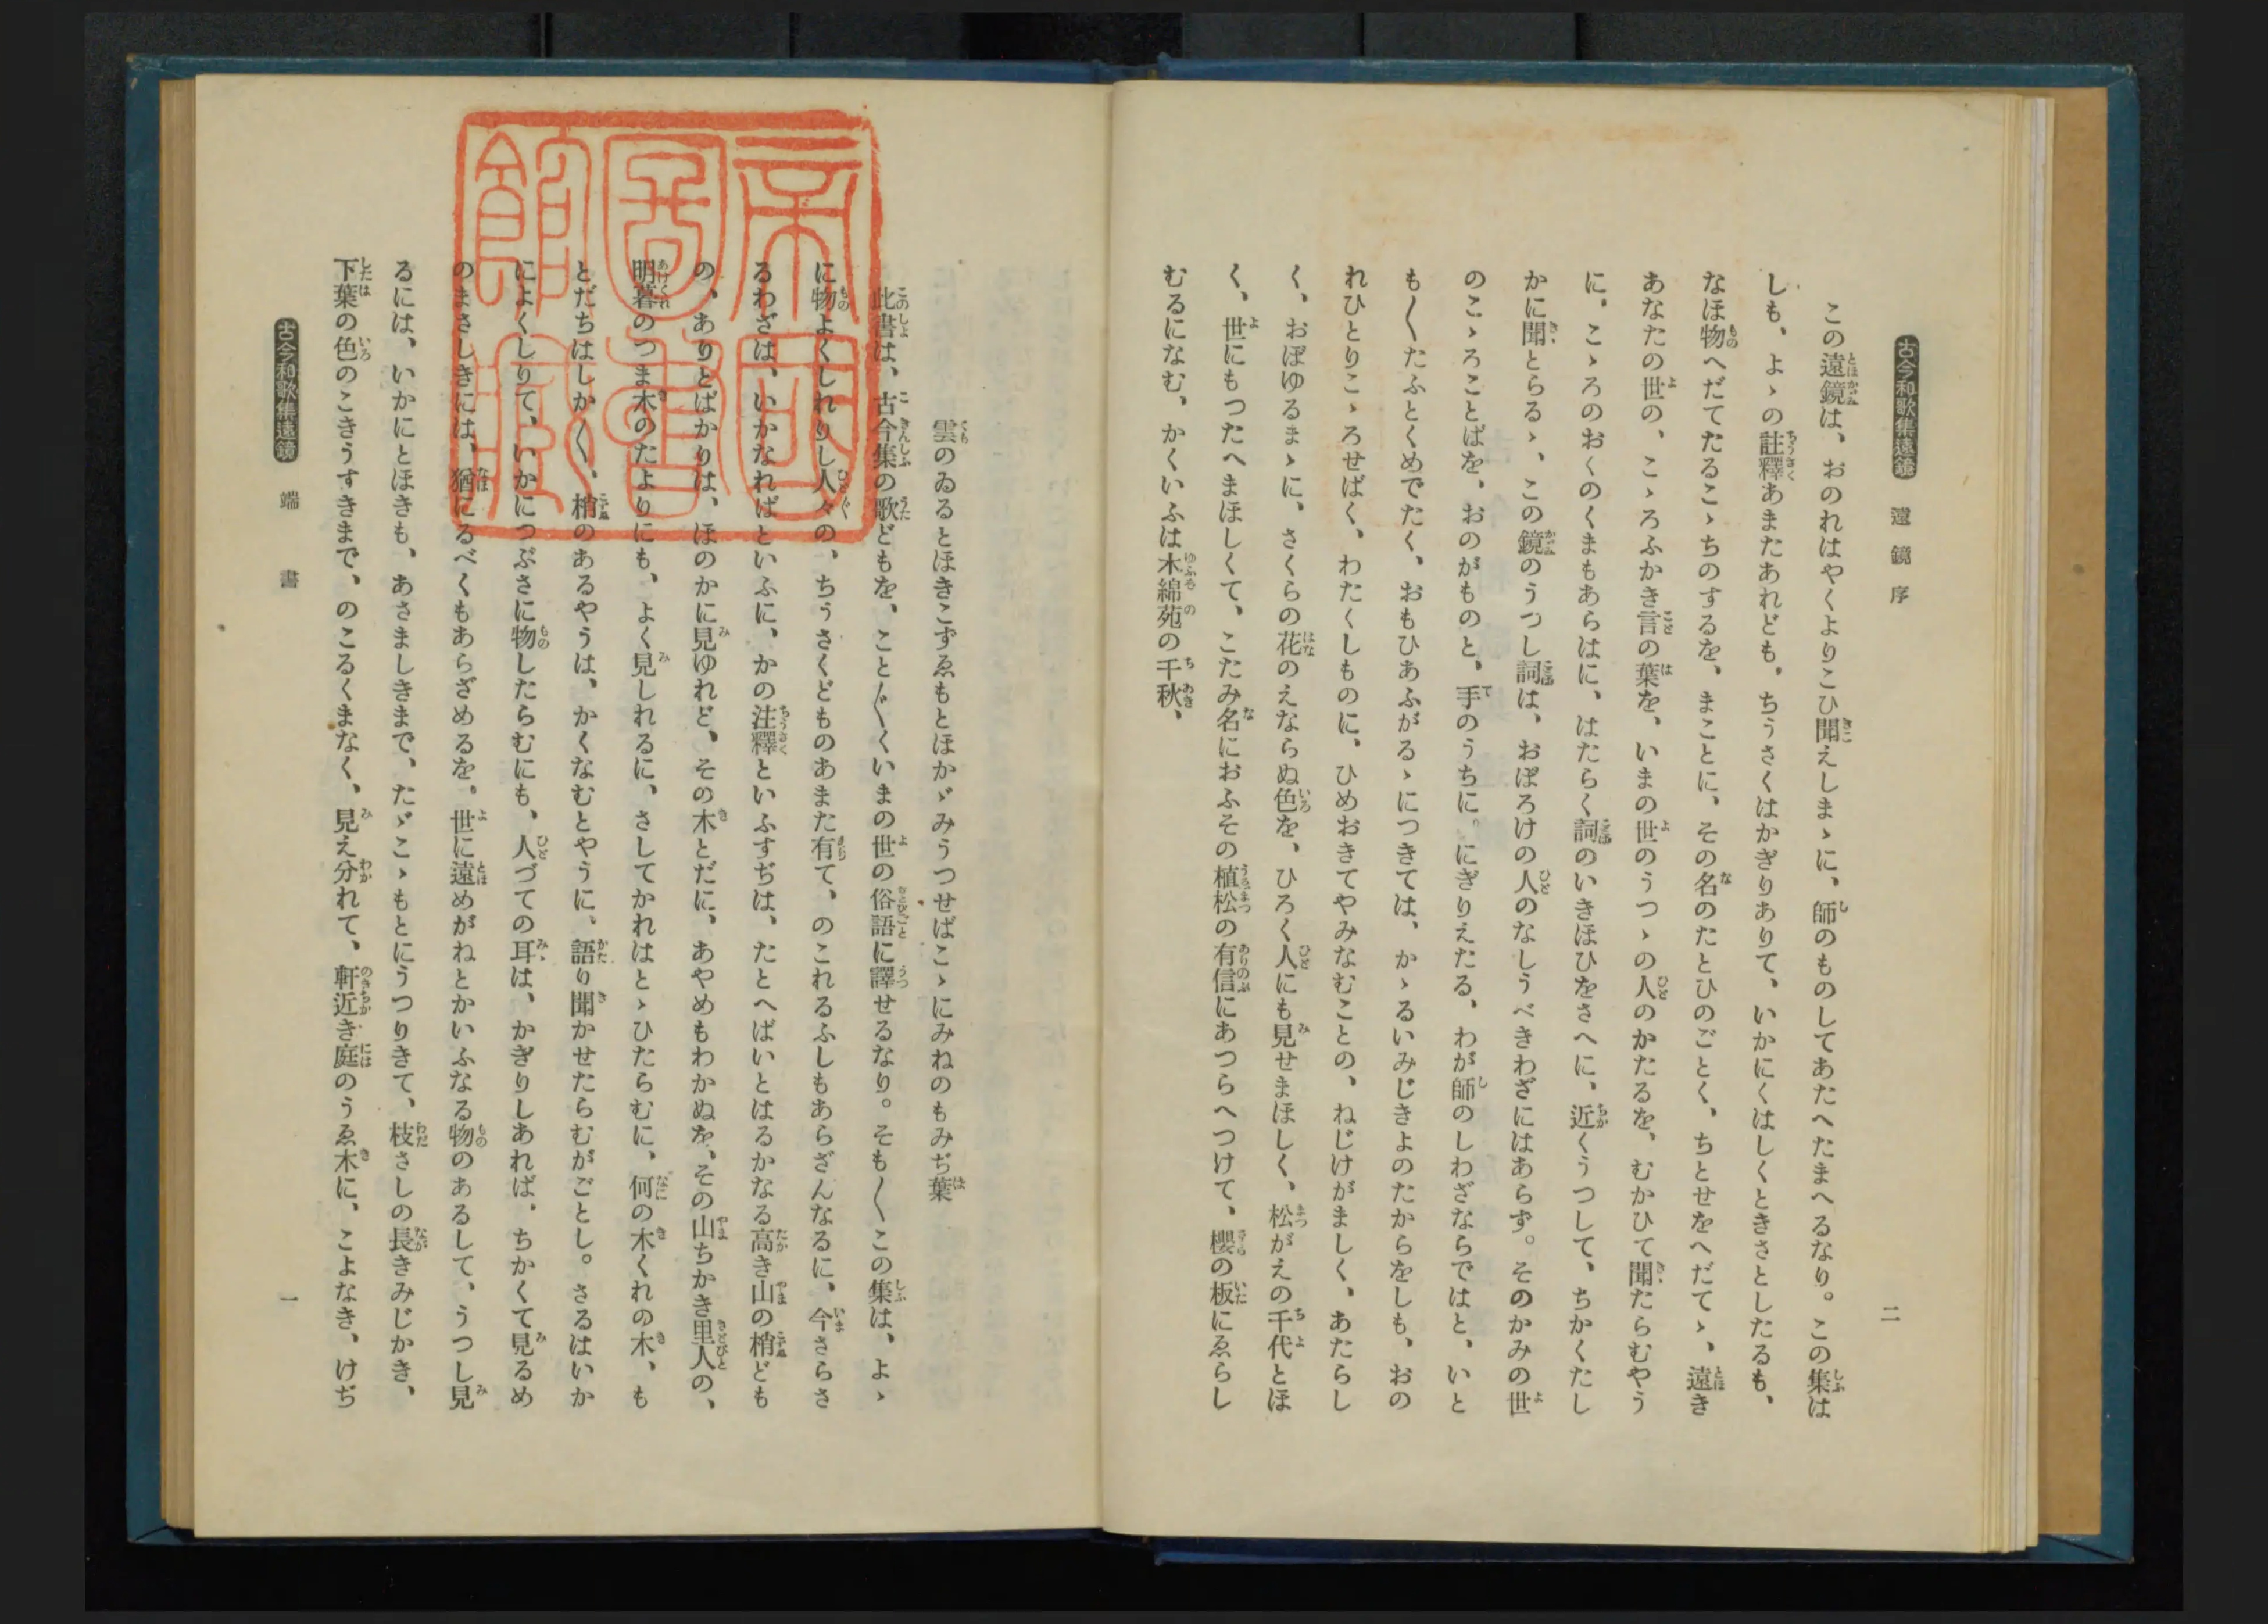 古今和歌集遠鏡　遠鏡序　二
この遠鏡は、おのれはやくよりこひ聞えしまゝに、師のものしてあたへたまへるなり。この集は
しも、よゝの註釋あまたあれども、ちうさくはかぎりありて、いかにくはしくときさとしたるも、
なほ物へだてたるこゝちのするを、まことに、その名のたとひのごとく、ちとせをへだてゝ、遠き
あなたの世の、こゝろふかき言の葉を、いまの世のうつゝの人のかたるを、むかひて聞たらむやう
に、こゝろのおくのくまもあらはに、はたらく詞のいきほひをさへに、近くうつして、ちかくたし
かに聞とらるゝ、この鏡のうつし詞は、おぼろけの人のなしうべきわざにはあらず。そのかみの世
のこゝろことばを、おのがものと、手のうちに、にぎりえたる、わが師のしわざならではと、いと
も〳〵たふとくめでたく、おもひあふがるゝにつきては、かゝるいみじきよのたからをしも、おの
れひとりこゝろせばく、わたくしものに、ひめおきてやみなむことの、ねじけがましく、あたらし
く、おぼゆるまゝに、さくらの花のえならぬ色を、ひろく人にも見せまほしく、松がえの千代とほ
く、世にもつたへまほしくて、こたみ名におふその植松の有信にあつらへつけて、櫻の板にゑらし
むるになむ、かくいふは木綿苑の千秋、
雲のゐるとほきこずゑもとほかゞみうつせばこゝにみねのもみぢ葉
此書は、古今集の歌どもを、こと〴〵くいまの世の俗語に譯せるなり。そも〳〵この集は、よゝ
に物よくしれりし人々の、ちうさくどものあまた有て、のこれるふしもあらざんなるに、今さらさ
るわざは、いかなればといふに、かの注釋といふすぢは、たとへばいとはるかなる高き山の梢ども
の、ありとばかりは、ほのかに見ゆれど、その木とだに、あやめもわかぬを、その山ちかき里人の、
明暮のつま木のたよりにも、よく見しれるに、さしてかれはとゝひたらむに、何の木くれの木、も
とだちはしか〴〵、梢のあるやうは、かくなむとやうに、語り聞かせたらむがごとし。さるはいか
によくしりて、いかにつぶさに物したらむにも、人づての耳は、かぎりしあれば、ちかくて見るめ
のまさしきには、猶にるべくもあらざめるを、世に遠めがねとかいふなる物のあるして、うつし見
るには、いかにとほきも、あさましきまで、たゞこゝもとにうつりきて、枝さしの長きみじかき、
下葉の色のこきうすきまで、のこるくまなく、見え分れて、軒近き庭のうゑ木に、こよなき、けぢ
古今和歌集遠鏡　端書　一
帝國圖書館藏